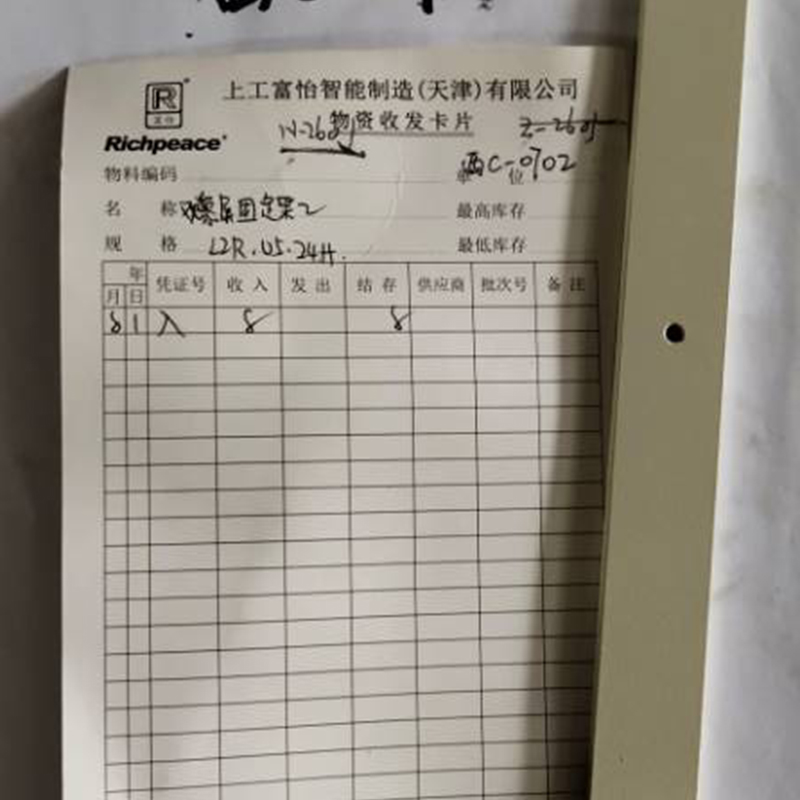 上工富怡智能制造(天津)有限公司
Richpeace
物资收发卡片
物料编码 单位 西C-0702
名称 固定架2 最高库存
规格 L2R.U5.24H. 最低库存
年 凭证号 收入 发出 结存 供应商 批次号 备注
月 日
8 1 入 8 8